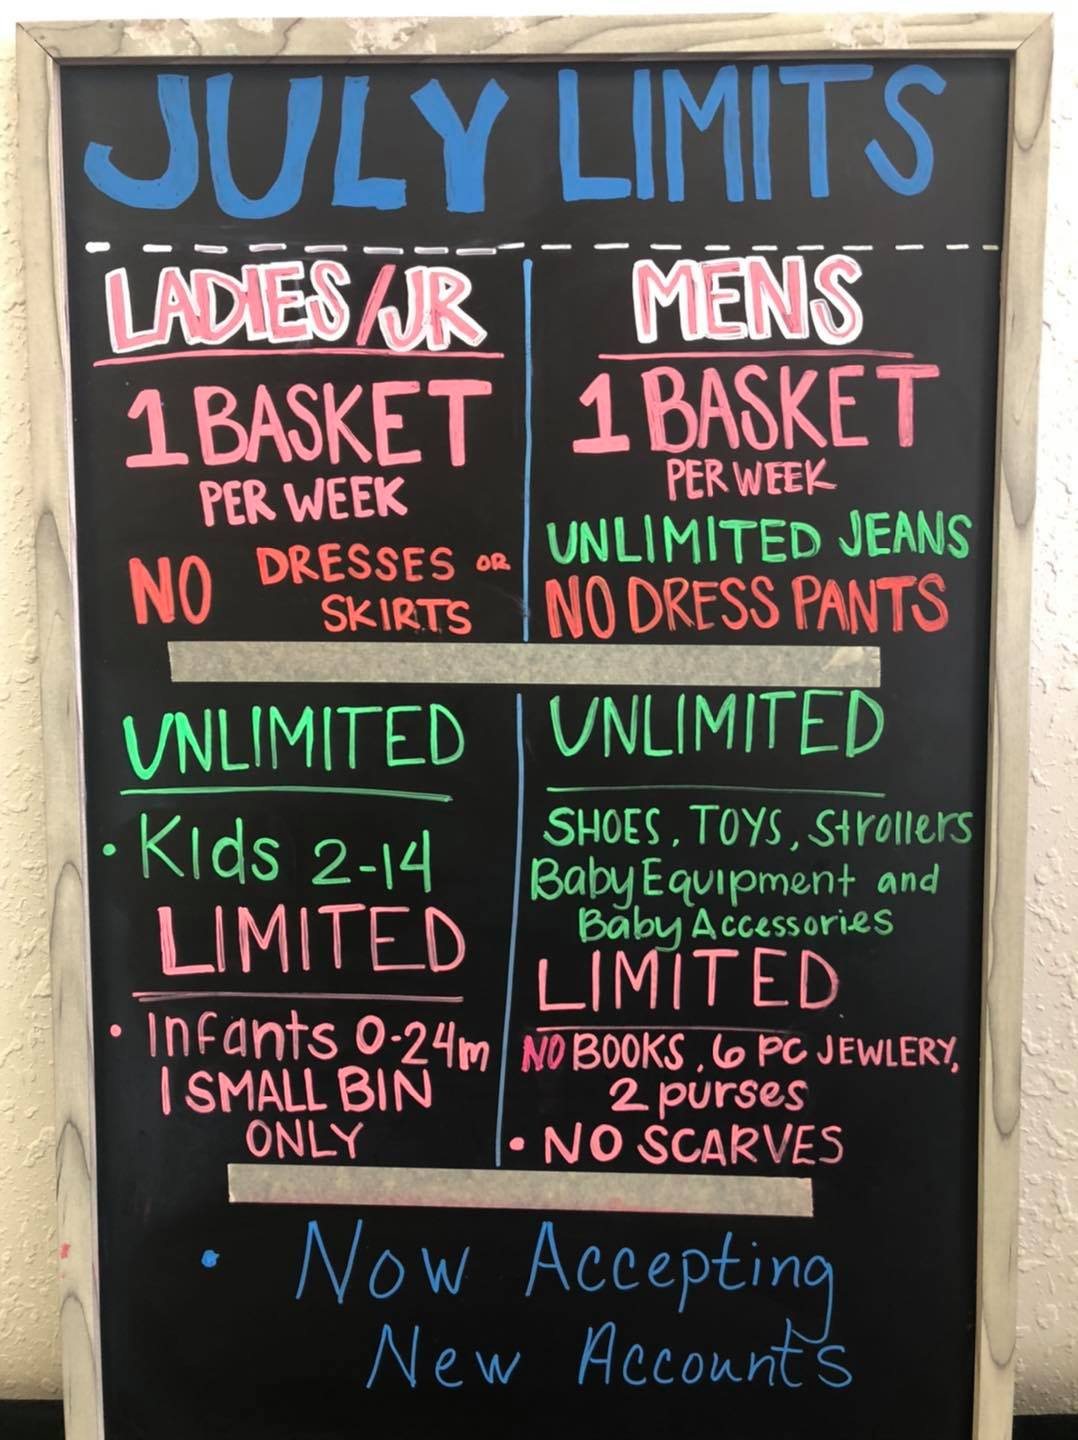 JULY LIMITS
LADIES/JR
1 BASKET
PER WEEK
NO DRESSES OR
SKIRTS
MENS
1 BASKET
PER WEEK
UNLIMITED JEANS
NO DRESS PANTS
UNLIMITED
• Kids 2-14
LIMITED
• Infants 0-24m
1 SMALL BIN
ONLY
UNLIMITED
SHOES, TOYS, Strollers
Baby Equipment and
Baby Accessories
LIMITED
NO BOOKS, 6 PC JEWLERY,
2 purses
• NO SCARVES
• Now Accepting
New Accounts